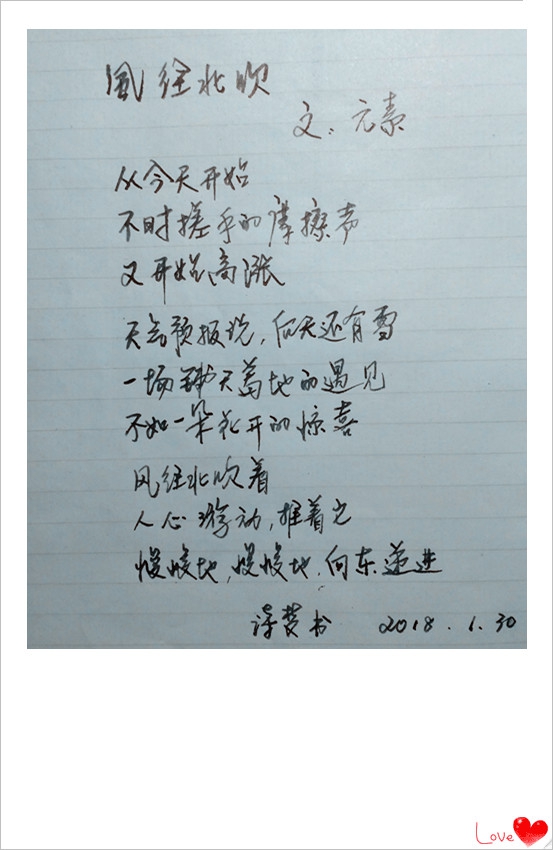 风往北吹
文：元素
从今天开始
不时搓手的摩擦声
又开始高涨
天气预报说，后天还有雪
一场铺天盖地的遇见
不如一朵花开的惊喜
风往北吹着
人心浮动，推着它
慢慢地，慢慢地，向东递进
梦书 2018.1.30
Love